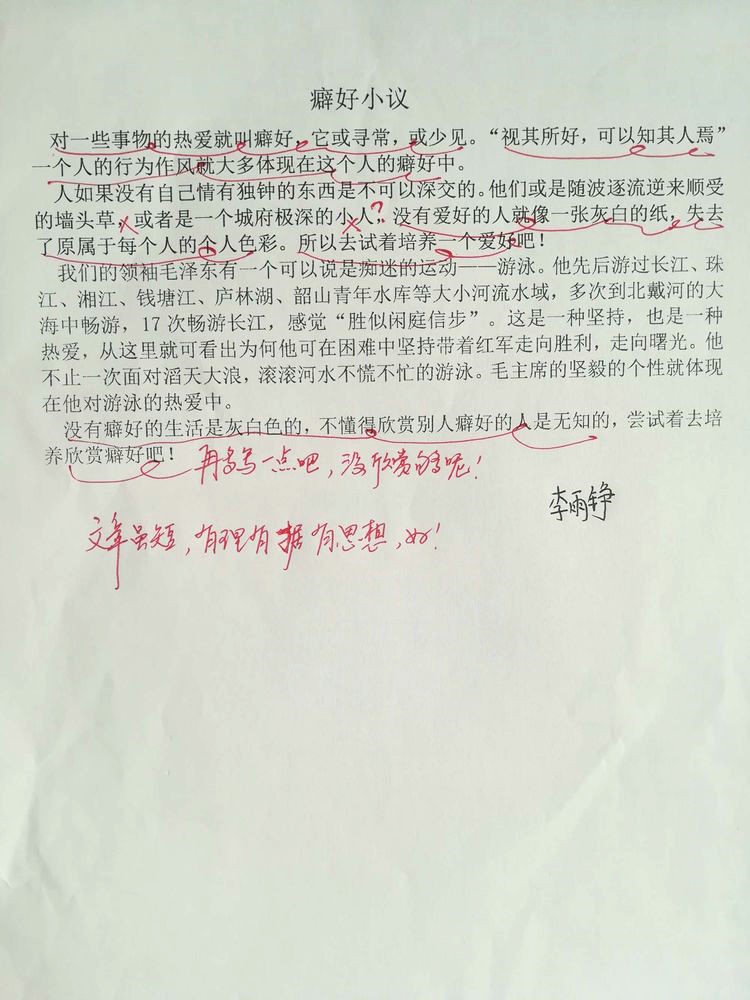 癖好小议
对一些事物的热爱就叫癖好，它或寻常，或少见。“视其所好，可以知其人焉”
一个人的行为作风就大多体现在这个人的癖好中。
人如果没有自己情有独钟的东西是不可以深交的。他们或是随波逐流逆来顺受
的墙头草，或者是一个城府极深的小人？。没有爱好的人就像一张灰白的纸，失去
了原属于每个人的个人色彩。所以去试着培养一个爱好吧！
我们的领袖毛泽东有一个可以说是痴迷的运动——游泳。他先后游过长江、珠
江、湘江、钱塘江、庐林湖、韶山青年水库等大小河流水域，多次到北戴河的大
海中畅游，17 次畅游长江，感觉“胜似闲庭信步”。这是一种坚持，也是一种
热爱，从这里就可看出为何他可在困难中坚持带着红军走向胜利，走向曙光。他
不止一次面对滔天大浪，滚滚河水不慌不忙的游泳。毛主席的坚毅的个性就体现
在他对游泳的热爱中。
没有癖好的生活是灰白色的，不懂得欣赏别人癖好的人是无知的，尝试着去培
养欣赏癖好吧！
再多写一点吧，没欣赏够呢！
李雨铮
文章虽短，有理有据有思想，好！